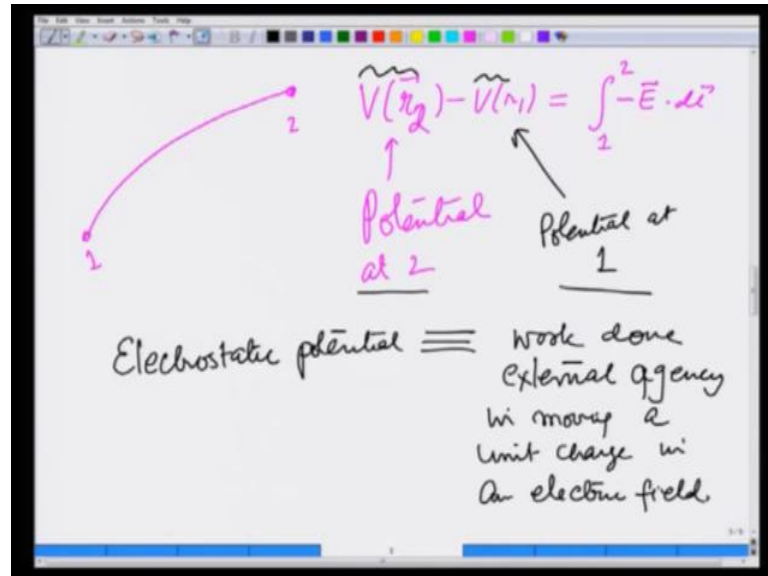 File Edit View Insert Actions Tools Help
V(r⃗2) - V(r1) = ∫₁² -E⃗ · dl⃗
2
1
Potential
at 2
Potential at
1
Electrostatic potential ≡ work done
external agency
in moving a
unit charge in
an electric field.